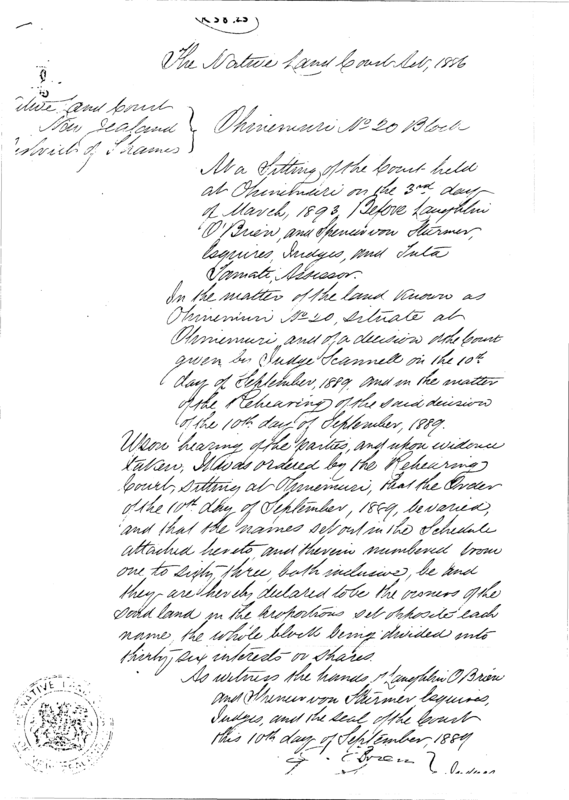 The Native Land Court Act, 1886
and Court
New Zealand
District of Thames
Ohinemuri No 20 Block
At a Sitting of the Court held
at Ohinemuri on the 3rd day
of March, 1893, Before Laughlin
O'Brien, and Spencer von Stürmer,
Esquires, Judges, and
Tamati, Assessor.
In the matter of the land known as
Ohinemuri No 20, situate at
Ohinemuri, and of a decision of the Court
given by Judge Scannell on the 10th
day of September, 1889 and in the matter
of the Rehearing of the said decision
of the 10th day of September, 1889.
Upon hearing of the parties, and upon evidence
taken, It was ordered by the Rehearing
Court, sitting at Ohinemuri, that the Order
of the 10th day of September, 1889, be varied,
and that the names set out in the Schedule
attached hereto, and therein numbered from
one to sixty three, both inclusive, be and
they are hereby declared to be the owners of the
said land in the proportions set opposite each
name, the whole block being divided into
thirty six interests or shares.
As witness the hands of Laughlin O'Brien
and Spencer von Stürmer Esquires,
Judges, and the seal of the Court
this 10th day of September, 1889
O'Brien
Judges
NATIVE LAND
NEW ZEALAND